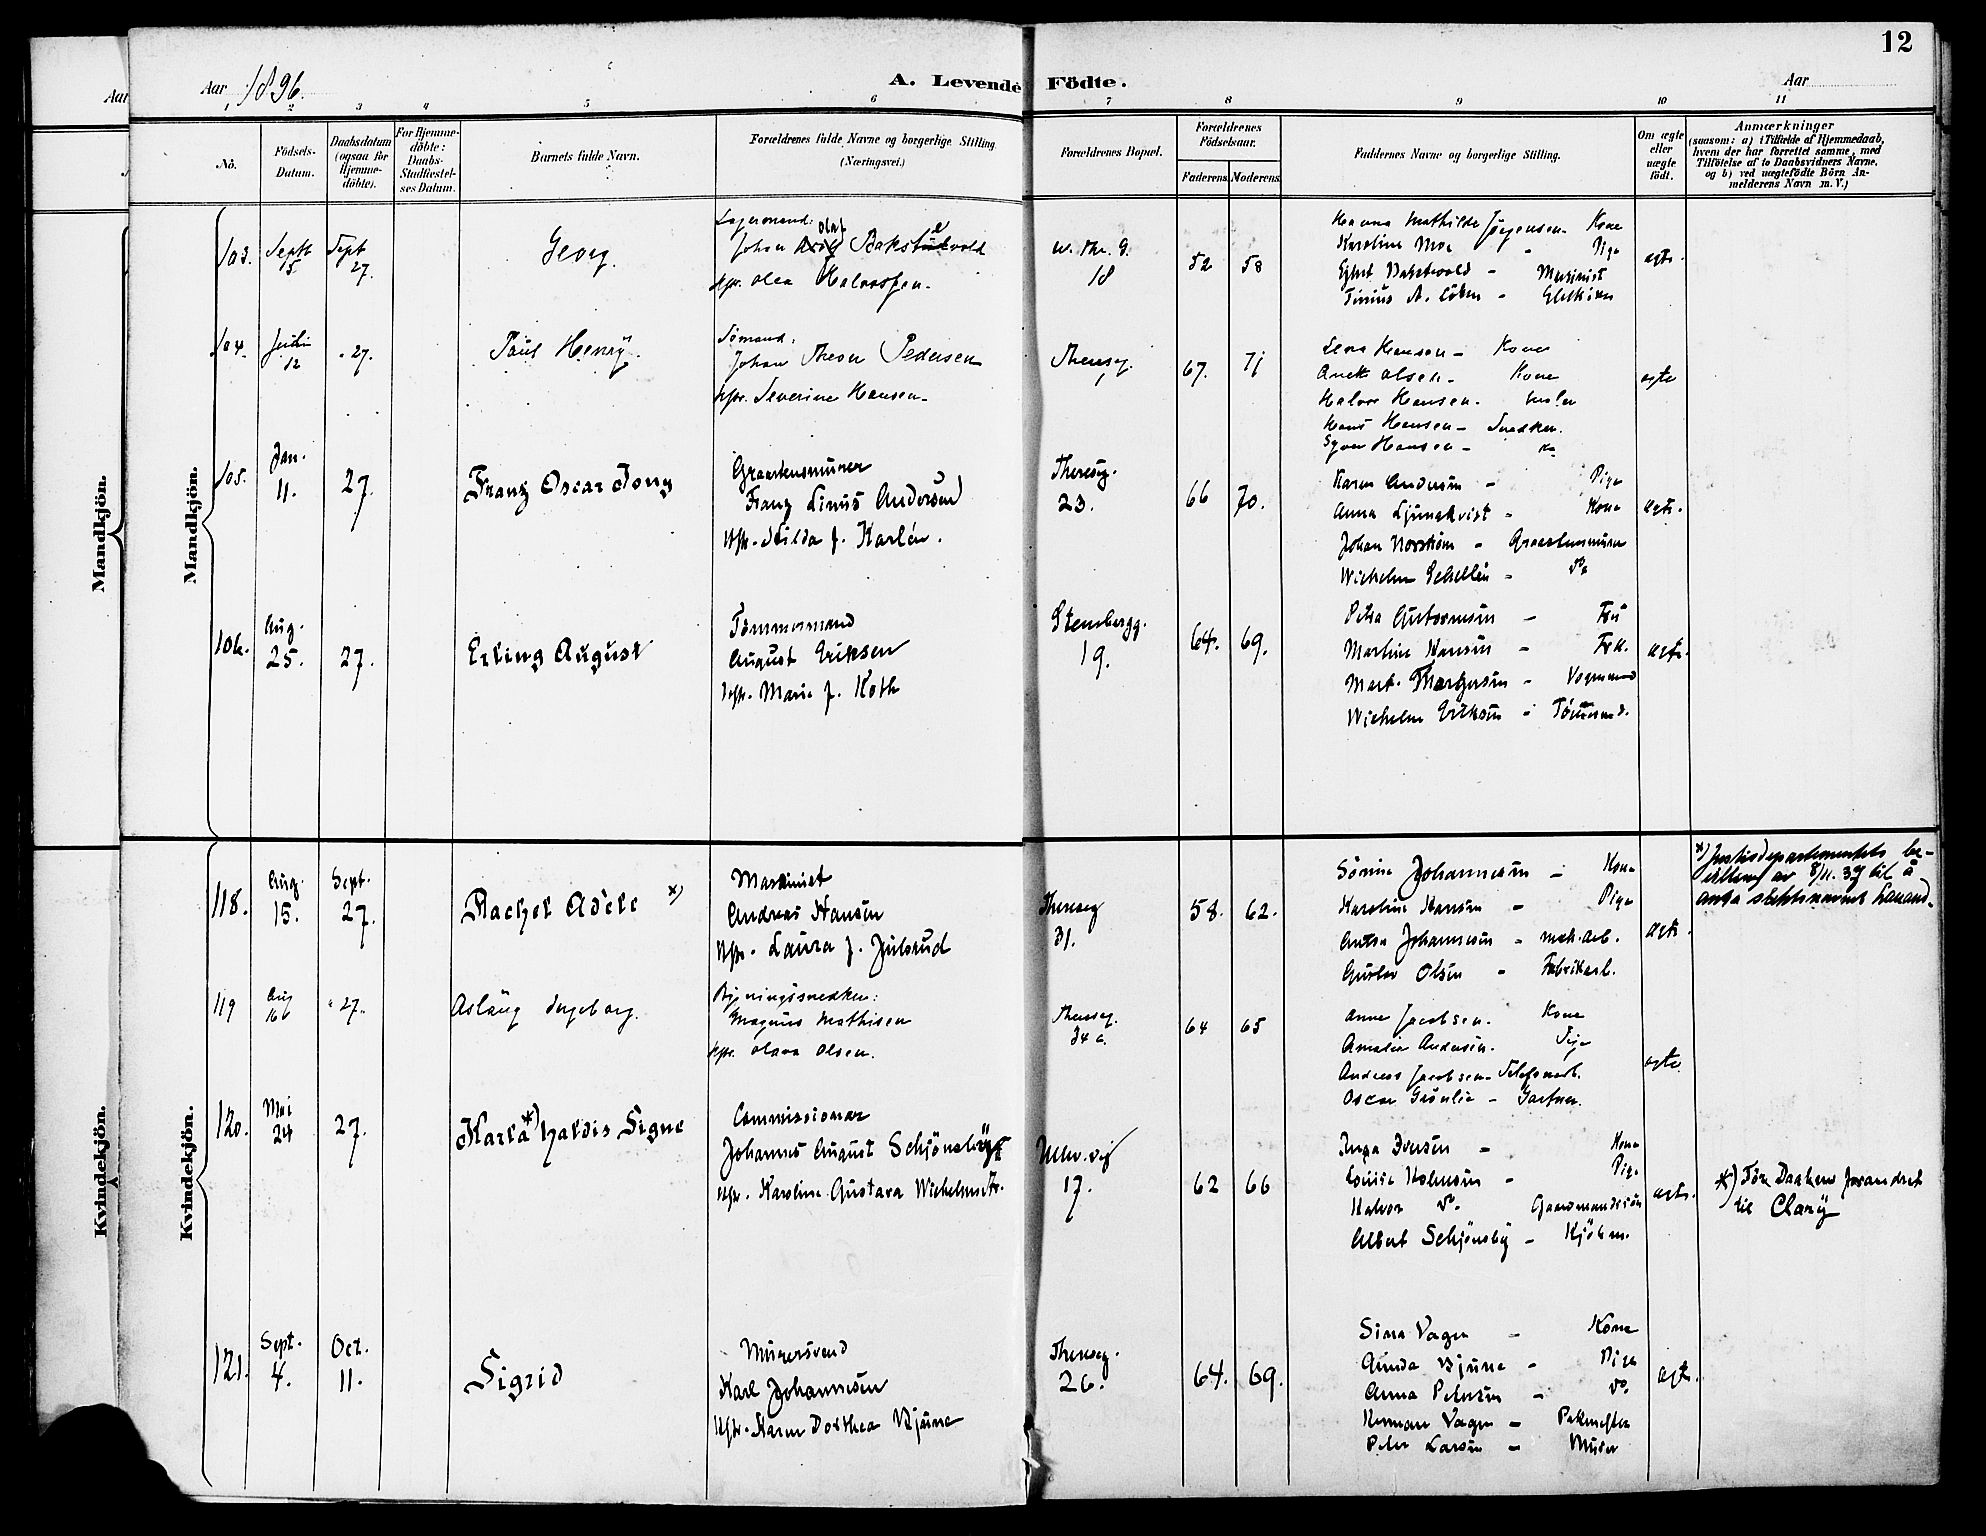 12
Aar 1896.
A. Levende Födte.
Aar
1 2 3 4 5 6 7 8 9 10 11
No.
Födsels-
Datum.
Daabsdatum
(ogsaa for
Hjemme-
döbte).
For Hjemme-
döbte:
Daabs-
Stadfæstel-
ses Datum.
Barnets fulde Navn.
Forældrenes fulde Navne og borgerlige Stilling
(Næringsvei.)
Forældrenes Bopæl.
Forældrenes
Födselsaar.
Faderens. Moderens.
Faddernes Navne og borgerlige Stilling.
Om ægte
eller
uægte
födt.
Anmærkninger
(saasom: a) i Tilfælde af Hjemmedaab,
hvem der har forrettet samme, med
Tilföielse af to Daabsvidners Navne,
og b) ved uægtefödte Börn An-
melderens Navn m. V.)
Mandkjön.
Mandkjön.
103.
Sept
15
Sept
27.
Georg.
Lagermand:
Johan Olaf Bakstevold
Hstr. Olea Halvorsen.
18
52 58
Hanna Mathilde Jørgensen - Kone
Karoline Moe " Pige
Bakstevold - Maskinist
ægte.
104.
12
" 27.
Paul Henry.
Sømand:
Johan Thevor Pedersen
Hstr. Severine Hansen.
Thereseg.
7
67. 71
Lena Hansen - Kone
Olsen - Kone
Halvor Hansen. Maler
Hans Hansen - Snedker.
Syver Hansen -
ægte
105.
Jan.
11.
27.
Franz Oscar Tony
Graastensmurer
Franz Linus Anderson
Hstr. Hilda f. Karlén.
Thereseg.
23.
66 70.
Karen Andersen - Pige
Anna Ljungkvist - Kone
Johan Norström - Graastensmurer
Wilhelm Schellin - Do
ægte.
106.
Aug.
25.
27.
Erling August
Tømmermand
August Eriksen
Hstr. Marie f. Roth
Stensbergg.
19.
64. 69.
Petra Gustavnsen - Fru
Martine Hansen - Frk.
Mart. Thorgersen - Vognmand
Wilhelm Eriksen - Tømmermd.
ægte.
Kvindekjön.
Kvindekjön.
118.
Aug.
15.
Sept.
27.
Rachel Adele *)
Maskinist
Andreas Hansen
Hstr. Laura f. Julsrud
Thereseg
31.
58. 62.
Sörine Johannesen - Kone
Karoline Hansen - Pige
Anton Johannesen - mek. arb.
Gustav Olsen - Fabrikarb.
ægte.
*) Justisdepartementets be-
villing av 8/11. 39 til å
anta slektsnavnet Lauand.
119
Aug
16
" 27.
Aslaug Ingeborg.
Bygningssnedker:
Magnus Mathisen
Hstr. Olava Olsen.
Thereseg.
34 c.
64 65
Anna Jacobsen. Kone
Amalie Andersen. Pige
Andreas Jacobsen - Telefonarb.
Oscar Grönlie - Gartner.
ægte
120.
Mai
24
27.
Karla *) Haldis Signe
Commissionær
Johannes August Schjønsby
Hstr. Karoline Gustava
Ullev. vej
17.
62 66
Inga Iversen - Kone
Louise Halvorsen - Pige
Halvor Do. Gaardmandssön
Albert Schjønsby - Kjöbm.
ægte.
*) Før Daaben forandret
til Clary
121.
Sept.
4.
Oct.
11.
Sigrid
Murersvend
Karl Johannesen
Hstr. Karen Dorthea Bjune
Thereseg.
26.
64. 69.
Sina Vagen - Kone
Gunda Bjune - Pige
Anna Petersen - Do.
Herman Vagen - Pakmester
Peter Larsen - Murer
ægte.